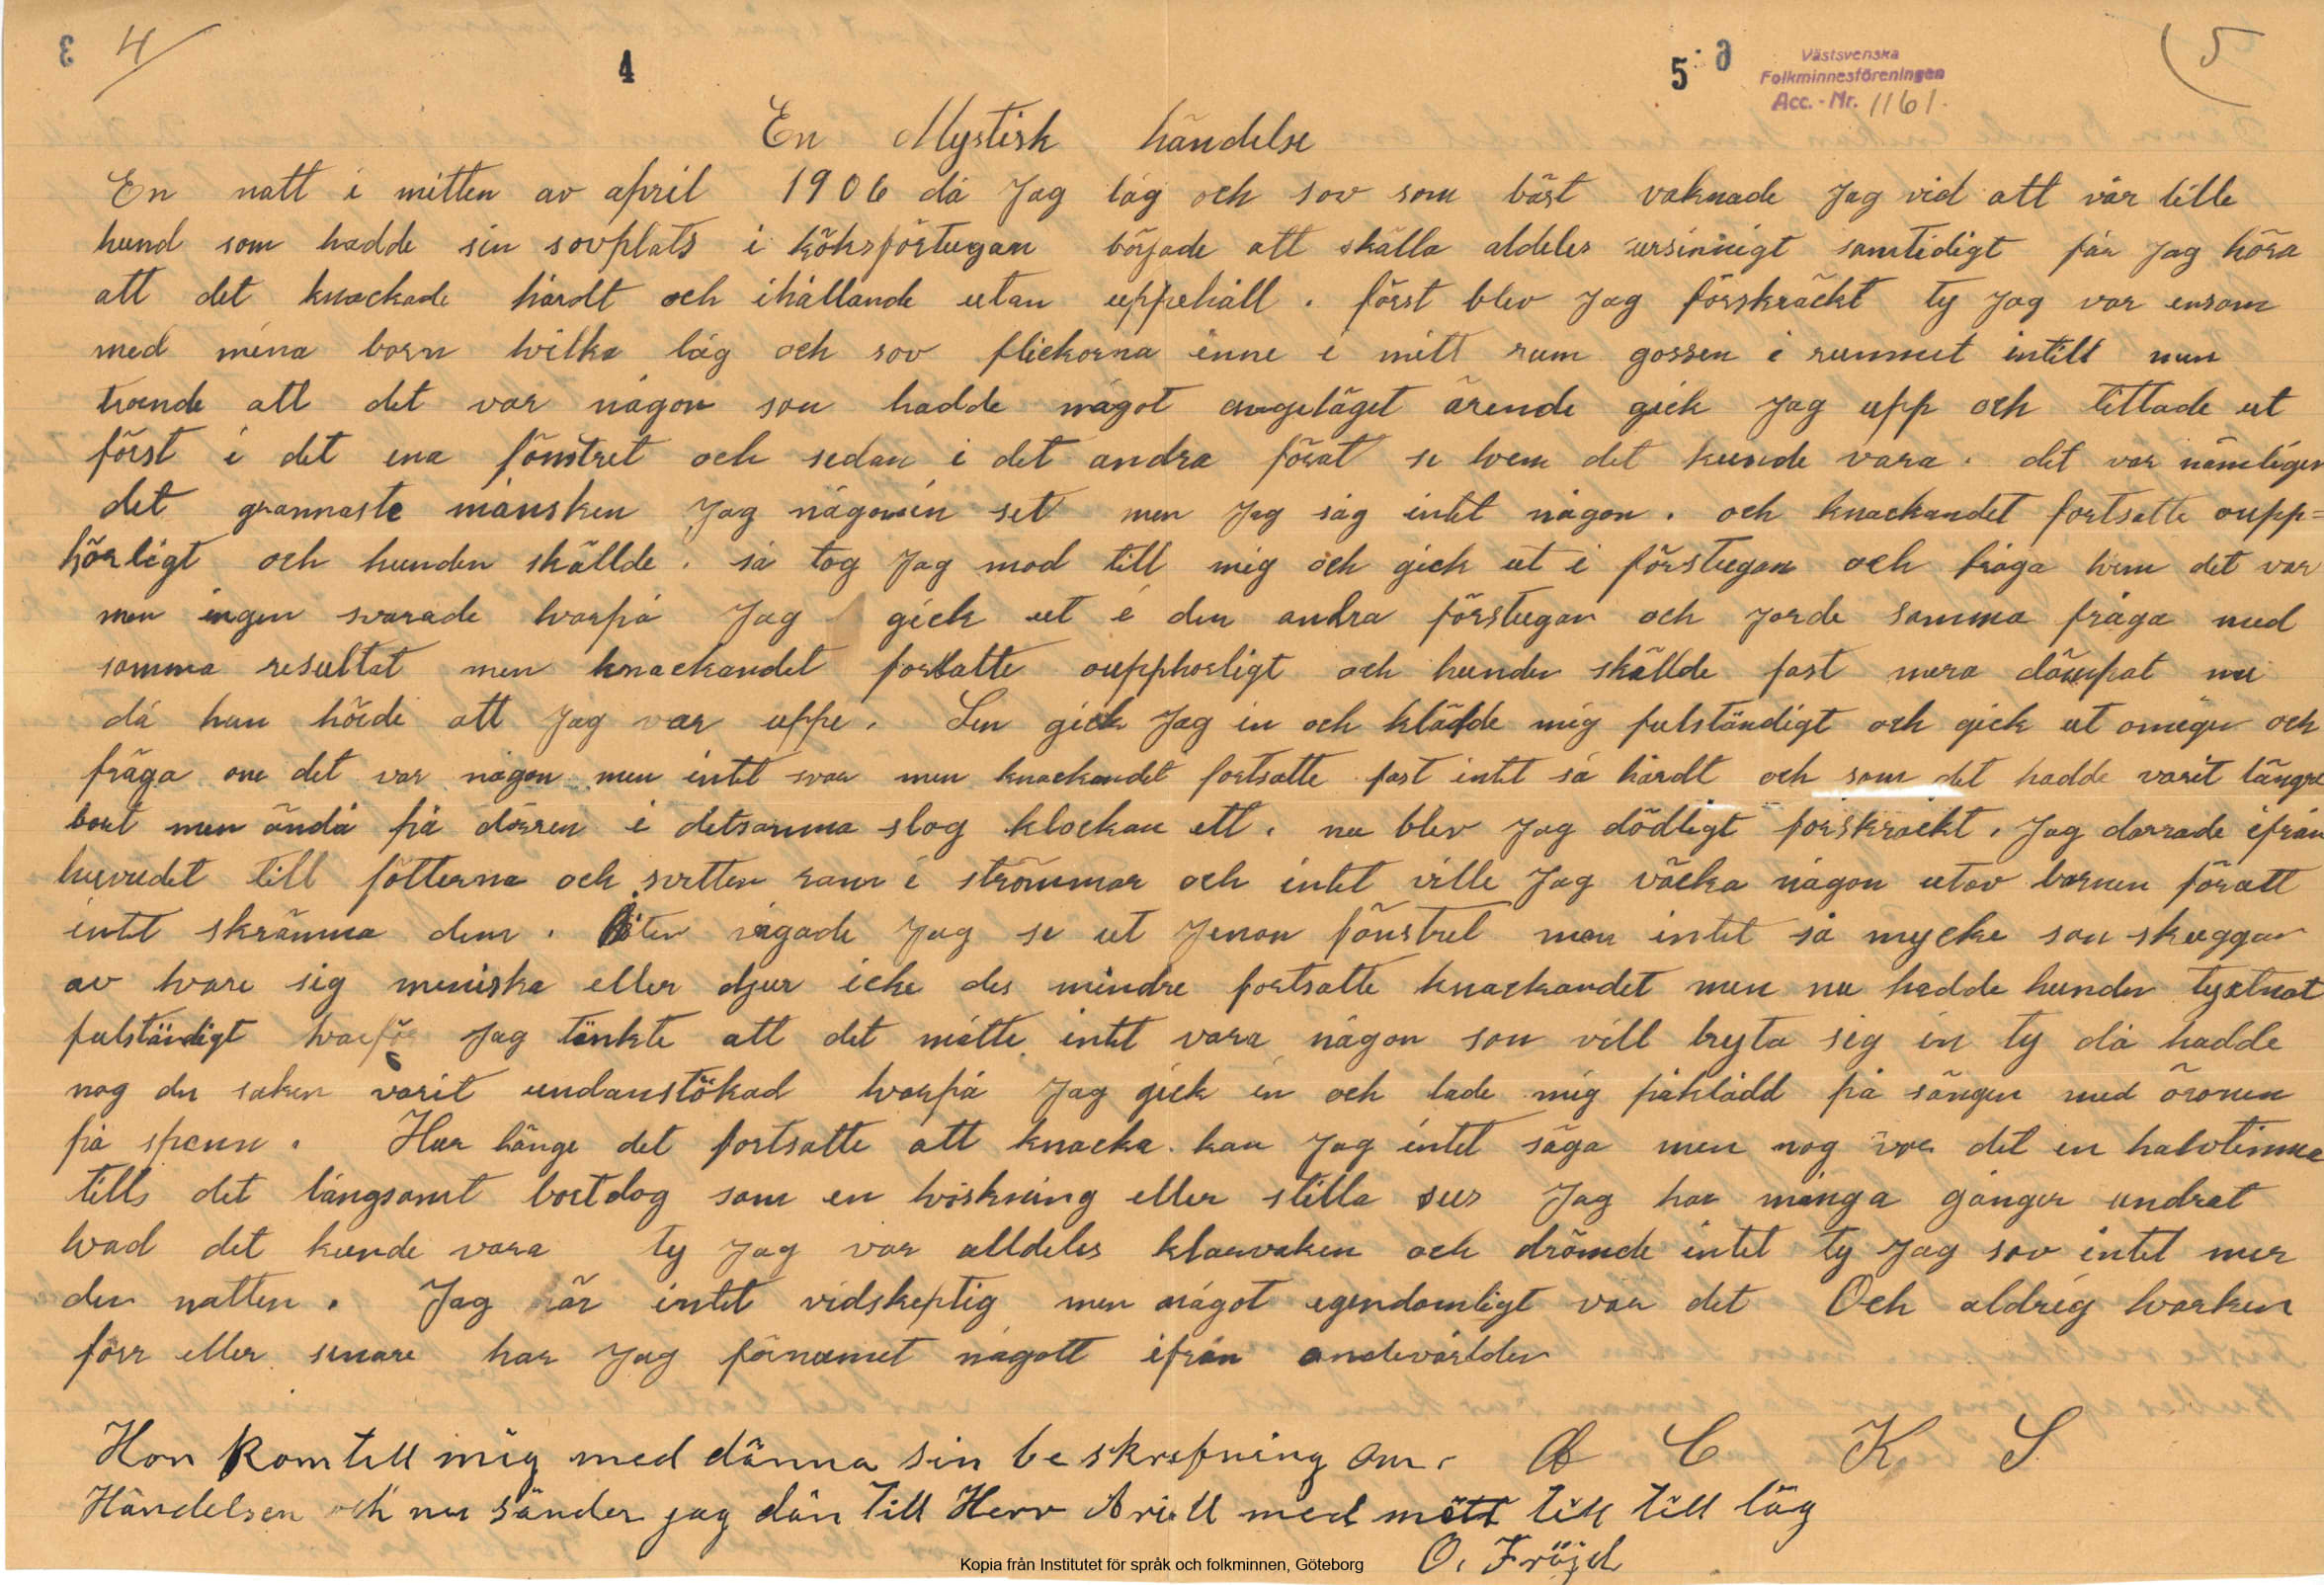 3 4 4 5 6 Västsvenska 5
Folkminnesföreningen
Acc.-Nr. 1161.
En Mystisk händelse
En natt i mitten av april 1906 då Jag låg och sov som bäst vaknade Jag vid att vår lille
hund som hadde sin sovplats i köksförstugan började att skälla aldeles ursinnigt samtidigt får Jag höra
att det knackade hårdt och ihållande utan uppehåll. först blev Jag förskräckt ty Jag var ensam
med mina barn hvilka låg och sov flickorna inne i mitt rum gossen i rummet intill men
troende att det var någon som hadde något angeläget ärende gick Jag upp och tittade ut
först i det ena fönstret och sedan i det andra förat se hvem det kunde vara. det var nämligen
det grannaste månsken Jag någonsin set men Jag såg intet någon. och knackandet fortsatte oupp=
hörligt och hunden skällde. så tog Jag mod till mig och gick ut i förstugan och fråga hvem det var
men ingen svarade hvarpå Jag gick ut i den andra förstugan och jorde samma fråga med
samma resultat men knackandet fortsatte oupphorligt och hunden skällde fast mera dämpat nu
då han hörde att Jag var uppe. Sen gick Jag in och klädde mig fulständigt och gick ut omigen och
fråga om det var någon men intet svar men knackandet fortsatte fast intet så hårdt och som det hadde varit längre
bort men ändå på dörren i detsamma slog klockan ett. nu blev Jag dödligt förskräckt. Jag darrade ifrån
huvudet till fötterna och svetten rann i strömmar och intet ville Jag väcka någon utav barnen föratt
intet skrämma dem. åter vågade Jag se ut jenon fönstret men intet så mycke som skuggan
av hvare sig meniska eller djur icke des mindre fortsatte knackandet men nu hadde hunden tystnat
fulständigt hvarför Jag tänkte att det måtte intet vara någon som vill bryta sig in ty då hadde
nog den saken varit undanstökad hvarpå Jag gick in och lade mig påklädd på sängen med öronen
på spenn. Hur länge det fortsatte att knacka kan Jag intet säga men nog var det en halvtimma
tills det långsamt bortdog som en hviskning eller stilla sus Jag har många gånger undrat
hvad det kunde vara ty Jag var alldeles klarvaken och drömde intet ty Jag sov intet mer
den natten. Jag är intet vidskeptig men något egendomligt var det Och aldrig hvarken
förr eller senare har Jag förnumet någott ifrån andevärlden
Hon kom till mig med dänna sin beskrefning om. C K S
Händelsen och nu sänder jag dän till Herr Arill med mött till till låg
O. Fröjd
Kopia från Institutet för språk och folkminnen, Göteborg